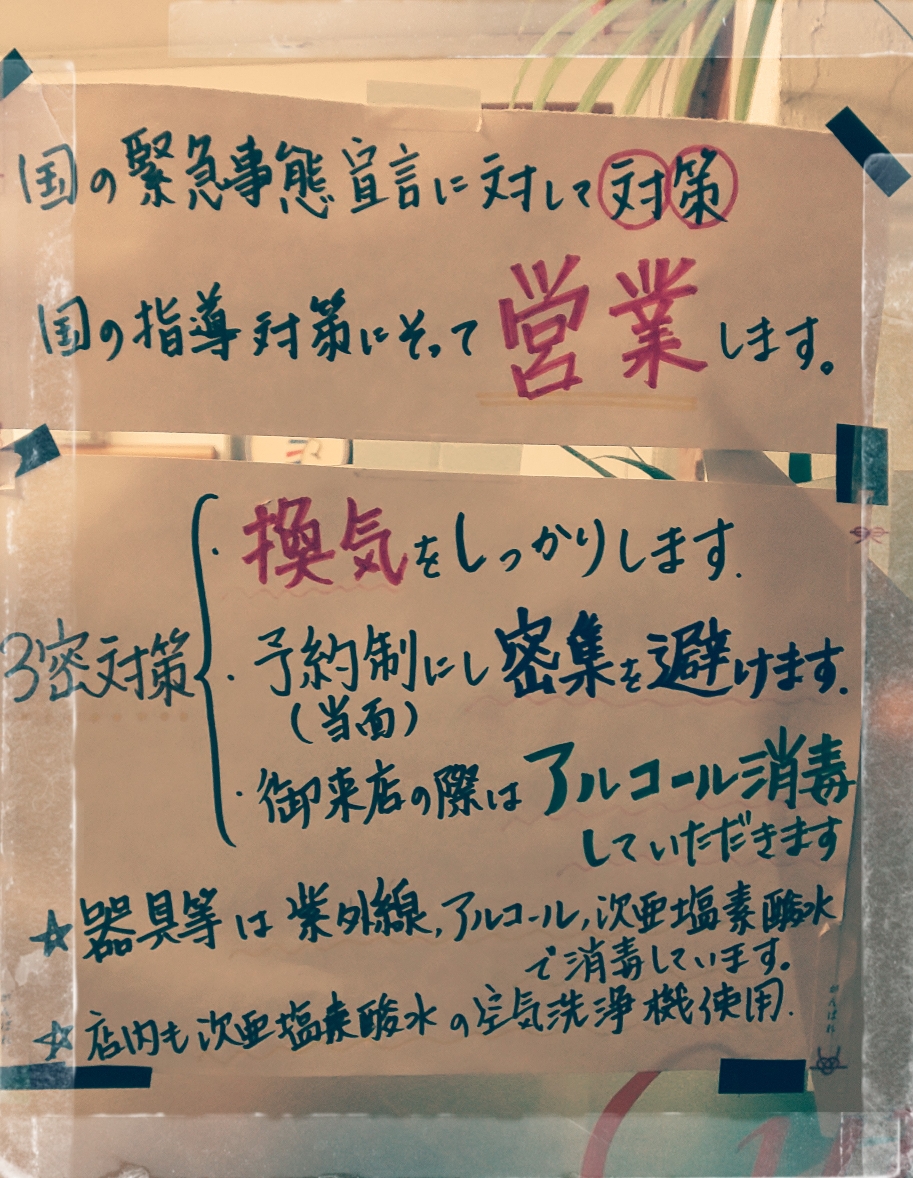 国の緊急事態宣言に対して対策
国の指導対策にそって営業します。
3密対策
・換気をしっかりします.
・予約制にし密集を避けます.
(当面)
・御来店の際はアルコール消毒
していただきます
☆器具等は紫外線,アルコール,次亜塩素酸水
で消毒しています。
☆店内も次亜塩素酸水の空気洗浄機使用.